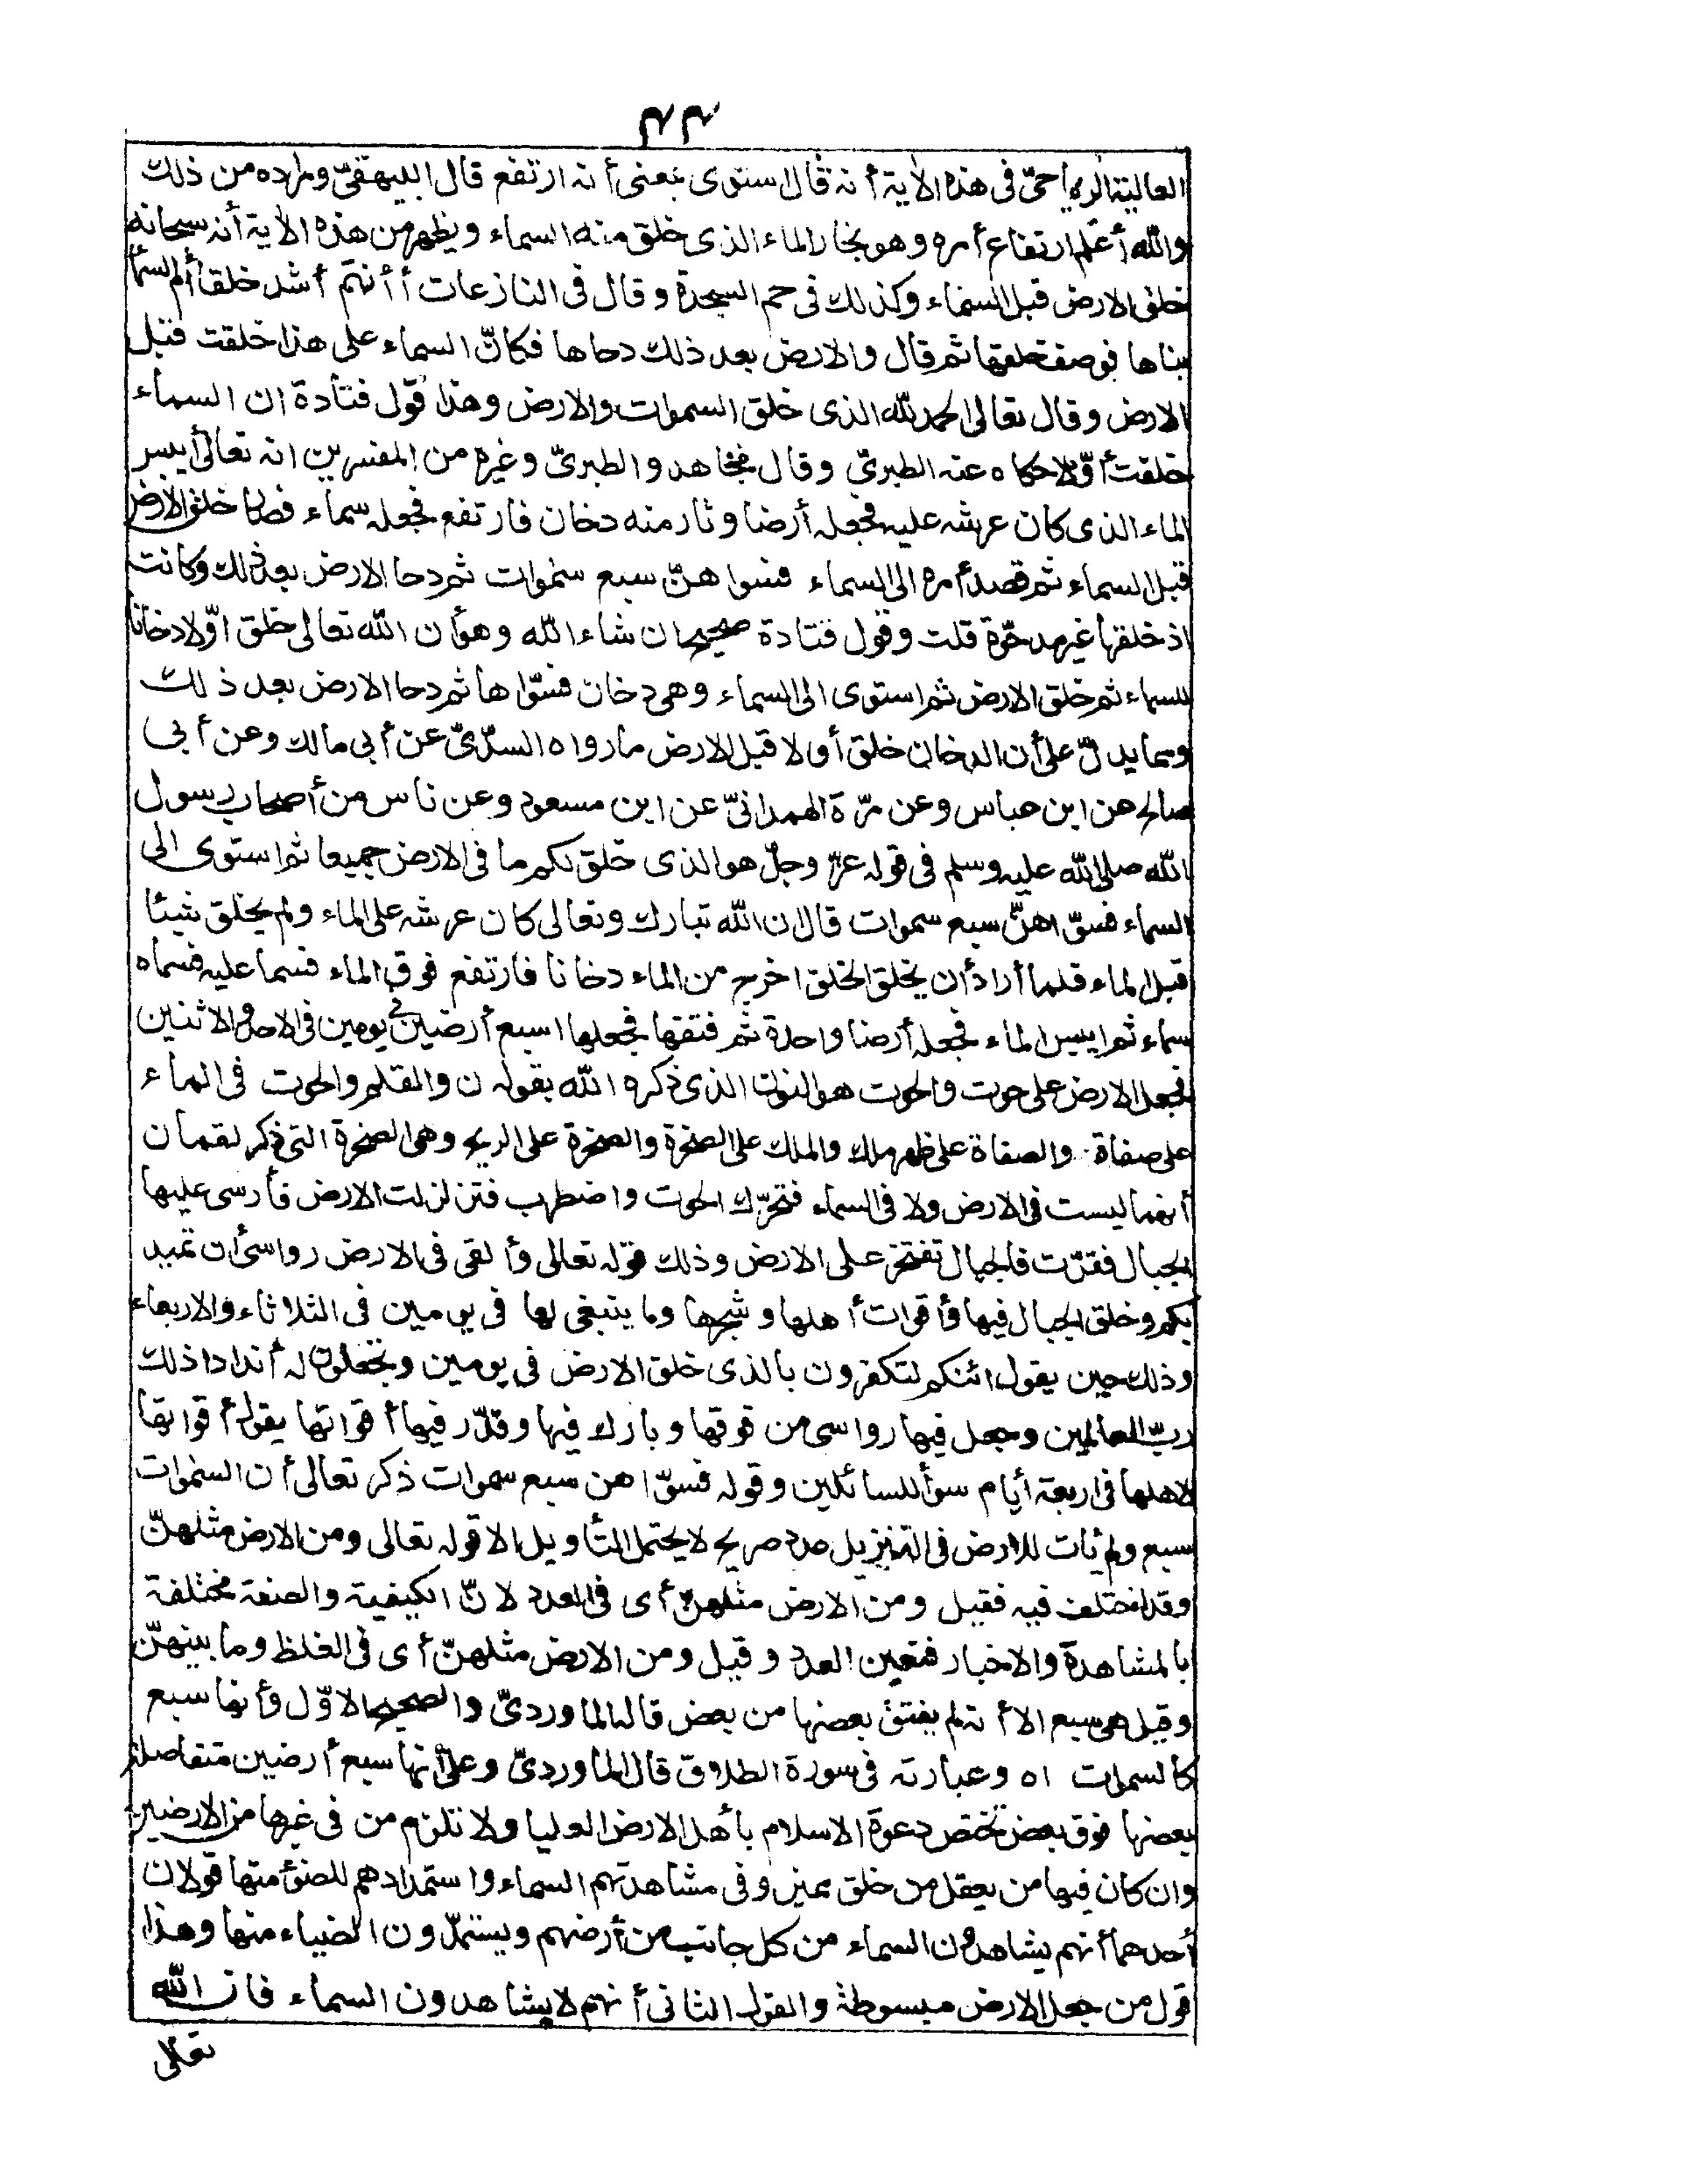 ٤٤
العالية الرياحىّ فى هذه الاية أنه قال استوى بمعنى أنه ارتفع قال البيهقىّ ومراده من ذلك
والله أعلم ارتفاع أمره وهو بخار الماء الذى خلق منه السماء ويظهر من هذه الاية أنه سبحانه
خلق الارض قبل السماء وكذلك فى حم السجدة وقال فى النازعات أأنتم أشد خلقا أم السماء
بناها فوصف خلقها ثم قال والارض بعد ذلك دحاها فكانّ السماء على هذا خلقت قبل
الارض وقال تعالى الحمد لله الذى خلق السموات والارض وهذا قول قتادة ان السماء
خلقت أوّلا حكاه عنه الطبرىّ وقال مجاهد والطبرىّ وغيره من المفسرين انه تعالى أيبس
الماء الذى كان عرشه عليه فجعله أرضا وثار منه دخان فارتفع فجعله سماء فصار خلق الارض
قبل السماء ثم قصد أمره الى السماء فسواهنّ سبع سموات ثم دحا الارض بعد ذلك وكانت
اذ خلقها غير مدحوّة قلت وقول قتادة صحيح ان شاء الله وهو أن الله تعالى خلق اوّلا دخانا
للسماء ثم خلق الارض ثم استوى الى السماء وهى دخان فسوّاها ثم دحا الارض بعد ذلك
ومما يدلّ على أن الدخان خلق أولا قبل الارض ما رواه السدّىّ عن أبى مالك وعن أبى
صالح عن ابن عباس وعن مرّة الهمدانىّ عن ابن مسعود وعن ناس من أصحاب رسول
الله صلى الله عليه وسلم فى قوله عزّ وجلّ هو الذى خلق لكم ما فى الارض جميعا ثم استوى الى
السماء فسوّاهنّ سبع سموات قال ان الله تبارك وتعالى كان عرشه على الماء ولم يخلق شيئا
قبل الماء فلما أراد أن يخلق الخلق اخرج من الماء دخانا فارتفع فوق الماء فسما عليه فسماه
سماء ثم ايبس الماء فجعله أرضا واحدة ثم فتقها فجعلها سبع أرضين فى يومين فى الاحد والاثنين
فجعل الارض على حوت والحوت هو النون الذى ذكره الله بقوله ن والقلم والحوت فى الماء
على صفاة والصفاة على ظهر ملك والملك على الصخرة والصخرة على الريح وهى الصخرة التى ذكر لقمان
أنها ليست فى الارض ولا فى السماء فتحرّك الحوت واضطرب فتزلزلت الارض فأرسى عليها
الجبال فقرّت فالجبال تفتخر على الارض وذلك قوله تعالى وألقى فى الارض رواسى أن تميد
بكم وخلق الجبال فيها وأقوات أهلها وشجرها وما ينبغى لها فى يومين فى الثلاثاء والاربعاء
وذلك حين يقول ائنكم لتكفرون بالذى خلق الارض فى يومين وتجعلون له أندادا ذلك
ربّ العالمين وجعل فيها رواسى من فوقها وبارك فيها وقدّر فيها أقواتها يقول أقواتها
لاهلها فى اربعة أيام سوأ للسائلين وقوله فسوّاهن سبع سموات ذكر تعالى أن السموات
سبع ولم يأت للارض فى التنزيل عدد صريح لا يحتمل التأويل الا قوله تعالى ومن الارض مثلهنّ
وقد اختلف فيه فقيل ومن الارض مثلهنّ أى فى العدد لانّ الكيفية والصفة مختلفة
بالمشاهدة والاخبار فتعين العدد وقيل ومن الارض مثلهنّ أى فى الغلظ وما بينهنّ
وقيل هى سبع الا أنه لم يفتق بعضها من بعض قاله الماوردىّ والصحيح الاوّل وأنها سبع
كالسموات اه وعبارته فى سورة الطلاق قال الماوردىّ وعلى أنها سبع أرضين متفاصلة
بعضها فوق بعض تختص دعوة الاسلام بأهل الارض العليا ولا تلزم من فى غيرها من الارضين
وان كان فيها من يعقل من خلق مميز وفى مشاهدتهم السماء واستمدادهم للضوء منها قولان
أحدهما أنهم يشاهدون السماء من كل جانب من أرضهم ويستمدّون الضياء منها وهذا
قول من جعل الارض مبسوطة والقول الثانى أنهم لا يشاهدون السماء فان الله
تعالى